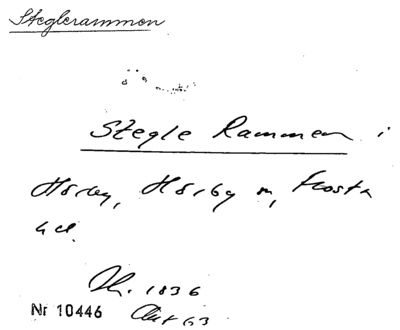 Steglerammen
Stegle Rammen i
Hörby, Hörby sn, Frosta
hd.
1836
Nr 10446